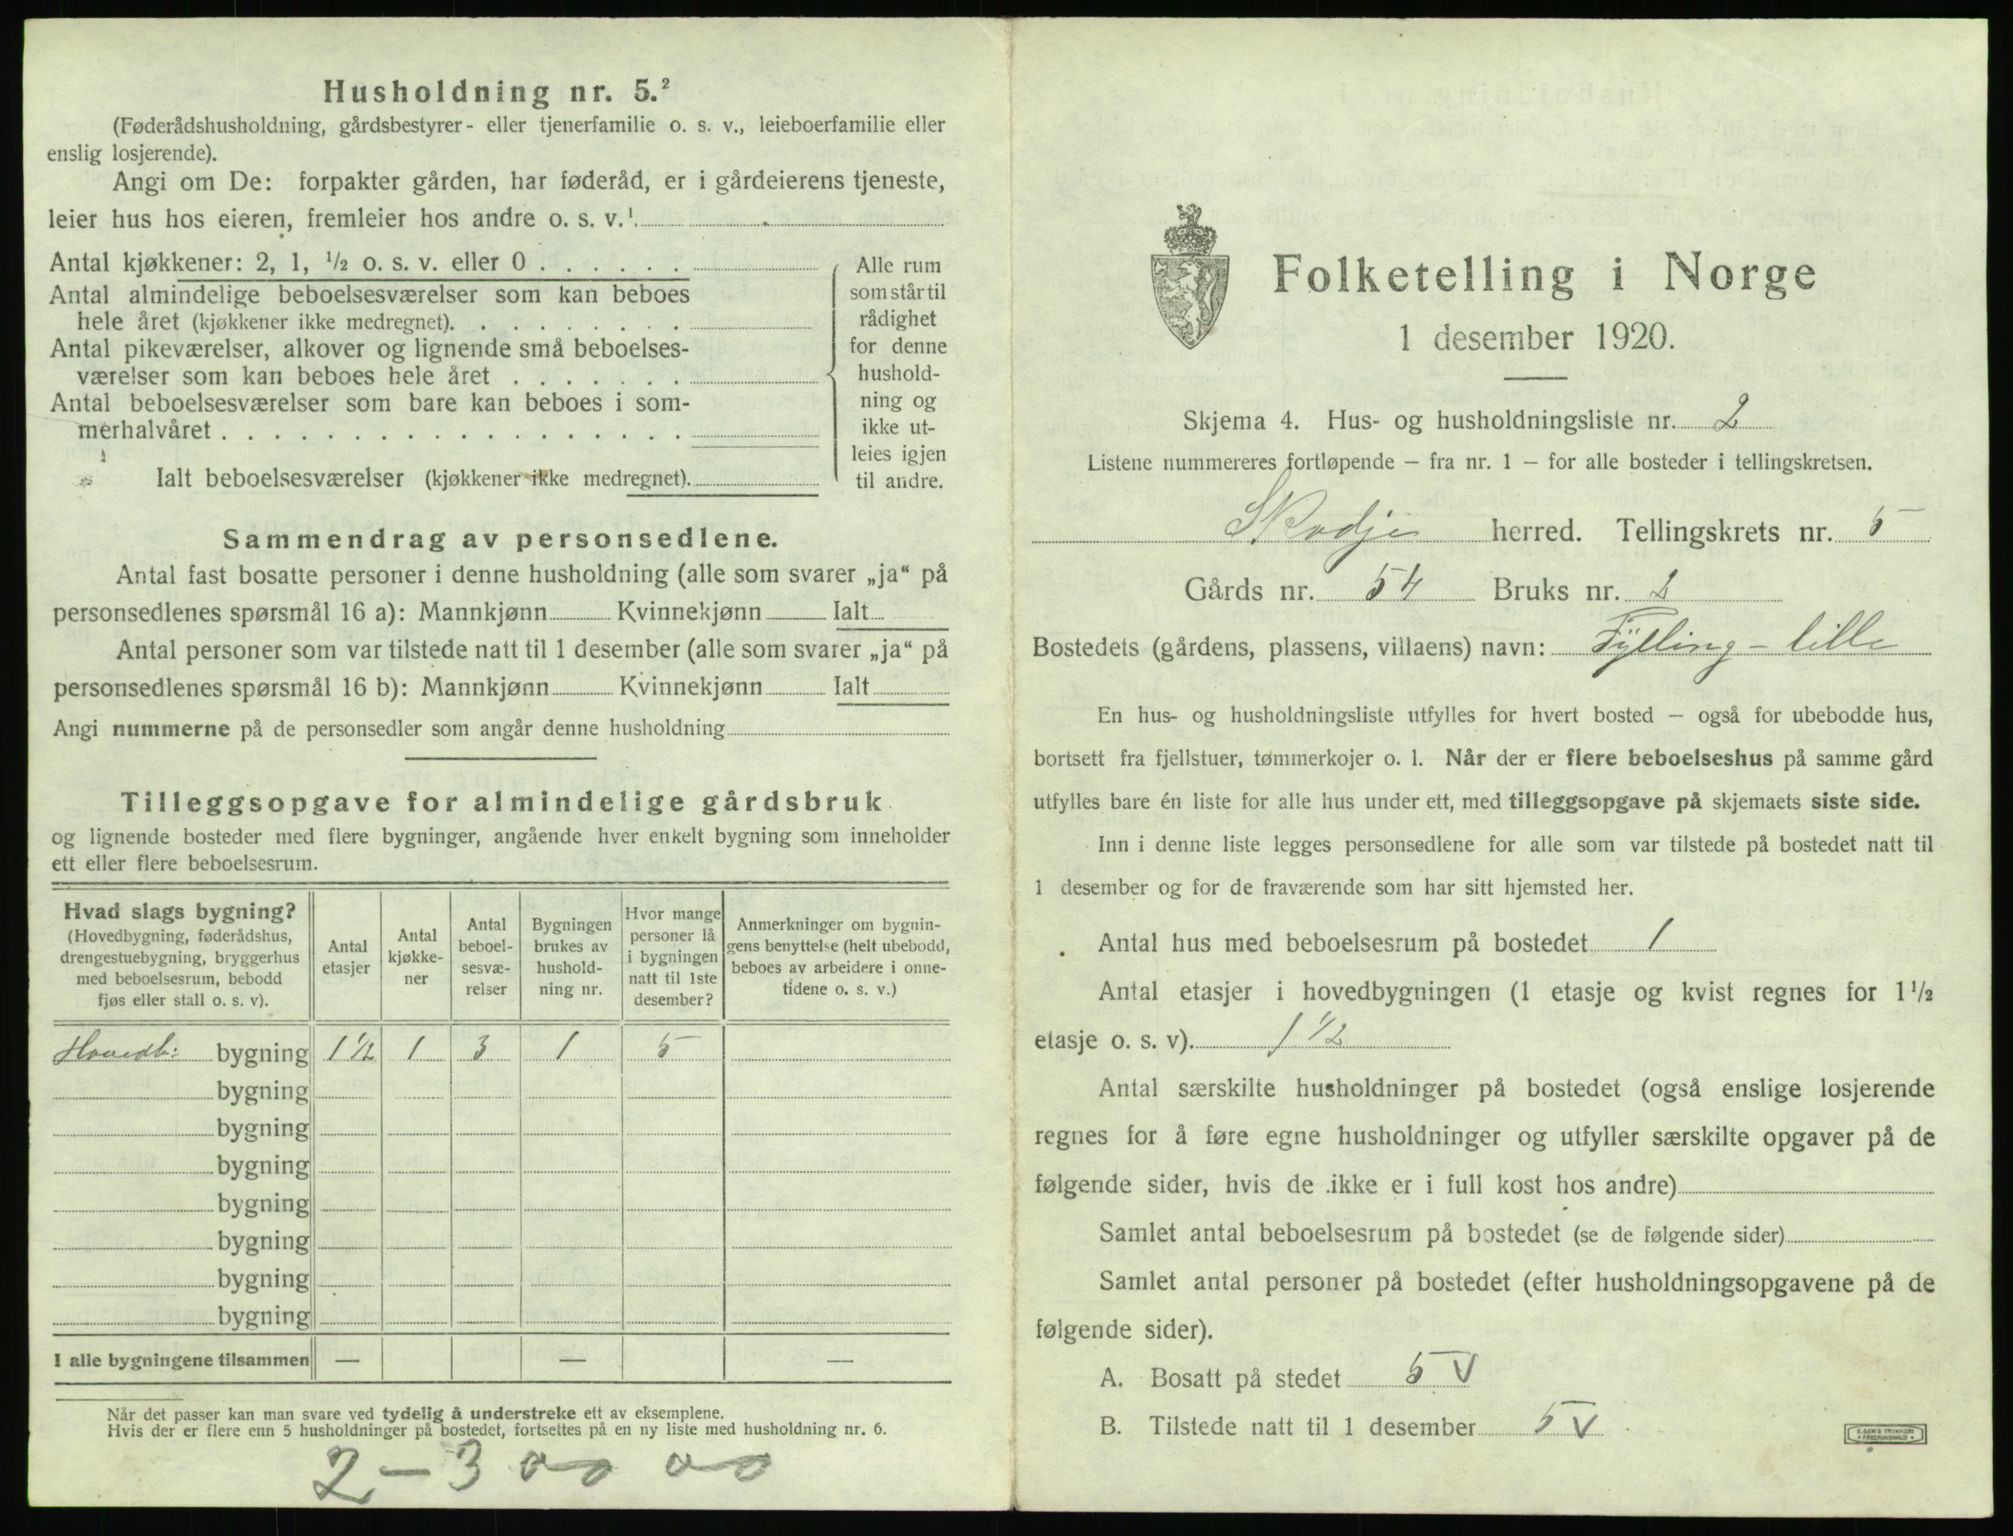 Husholdning nr. 5.²
(Føderådshusholdning, gårdsbestyrer- eller tjenerfamilie o. s. v., leieboerfamilie eller
enslig losjerende).
Angi om De: forpakter gården, har føderåd, er i gårdeierens tjeneste,
leier hus hos eieren, fremleier hos andre o. s. v.¹
Antal kjøkkener: 2, 1, ½ o. s. v. eller 0 . . . . . .
Antal almindelige beboelsesværelser som kan beboes
hele året (kjøkkener ikke medregnet). . . . . . . . .
Antal pikeværelser, alkover og lignende små beboelses-
værelser som kan beboes hele året . . . . . . .
Antal beboelsesværelser som bare kan beboes i som-
merhalvåret . . . . . . . . . . . . . . . . . .
Ialt beboelsesværelser (kjøkkener ikke medregnet).
Alle rum
som står til
rådighet
for denne
hushold-
ning og
ikke ut-
leies igjen
til andre.
Sammendrag av personsedlene.
Antal fast bosatte personer i denne husholdning (alle som svarer „ja“ på
personsedlenes spørsmål 16 a): Mannkjønn Kvinnekjønn Ialt
Antal personer som var tilstede natt til 1 desember (alle som svarer „ja“ på
personsedlenes spørsmål 16 b): Mannkjønn Kvinnekjønn Ialt
Angi nummerne på de personsedler som angår denne husholdning
Tilleggsopgave for almindelige gårdsbruk
og lignende bosteder med flere bygninger, angående hver enkelt bygning som inneholder
ett eller flere beboelsesrum.
Hvad slags bygning?
(Hovedbygning, føderådshus,
drengestuebygning, bryggerhus
med beboelsesrum, bebodd
fjøs eller stall o. s. v).
Antal
etasjer
Antal
kjøkke-
ner
Antal
beboel-
sesvæ-
relser
Bygningen
brukes av
hushold-
ning nr.
Hvor mange
personer lå
i bygningen
natt til 1ste
desember?
Anmerkninger om bygnin-
gens benyttelse (helt ubebodd,
beboes av arbeidere i onne-
tidene o. s. v.)
Hovedb: bygning 1 ½ 1 3 1 5
bygning
bygning
bygning
bygning
bygning
bygning
bygning
I alle bygningene tilsammen — — —
Når det passer kan man svare ved tydelig å understreke ett av eksemplene.
Hvis der er flere enn 5 husholdninger på bostedet, fortsettes på en ny liste med husholdning nr. 6.
2 – 3 00 00
Folketelling i Norge
1 desember 1920.
Skjema 4. Hus- og husholdningsliste nr. 2
Listene nummereres fortløpende — fra nr. 1 — for alle bosteder i tellingskretsen.
Skodje herred. Tellingskrets nr. 5
Gårds nr. 54 Bruks nr. 2
Bostedets (gårdens, plassens, villaens) navn: Fylling – lille
En hus- og husholdningsliste utfylles for hvert bosted — også for ubebodde hus,
bortsett fra fjellstuer, tømmerkojer o. l. Når der er flere beboelseshus på samme gård
utfylles bare én liste for alle hus under ett, med tilleggsopgave på skjemaets siste side.
Inn i denne liste legges personsedlene for alle som var tilstede på bostedet natt til
1 desember og for de fraværende som har sitt hjemsted her.
Antal hus med beboelsesrum på bostedet 1
Antal etasjer i hovedbygningen (1 etasje og kvist regnes for 1½
etasje o. s. v). 1 ½
Antal særskilte husholdninger på bostedet (også enslige losjerende
regnes for å føre egne husholdninger og utfyller særskilte opgaver på de
følgende sider, hvis de ikke er i full kost hos andre)
Samlet antal beboelsesrum på bostedet (se de følgende sider)
Samlet antal personer på bostedet (efter husholdningsopgavene på de
følgende sider).
A. Bosatt på stedet 5 V
B. Tilstede natt til 1 desember 5 V